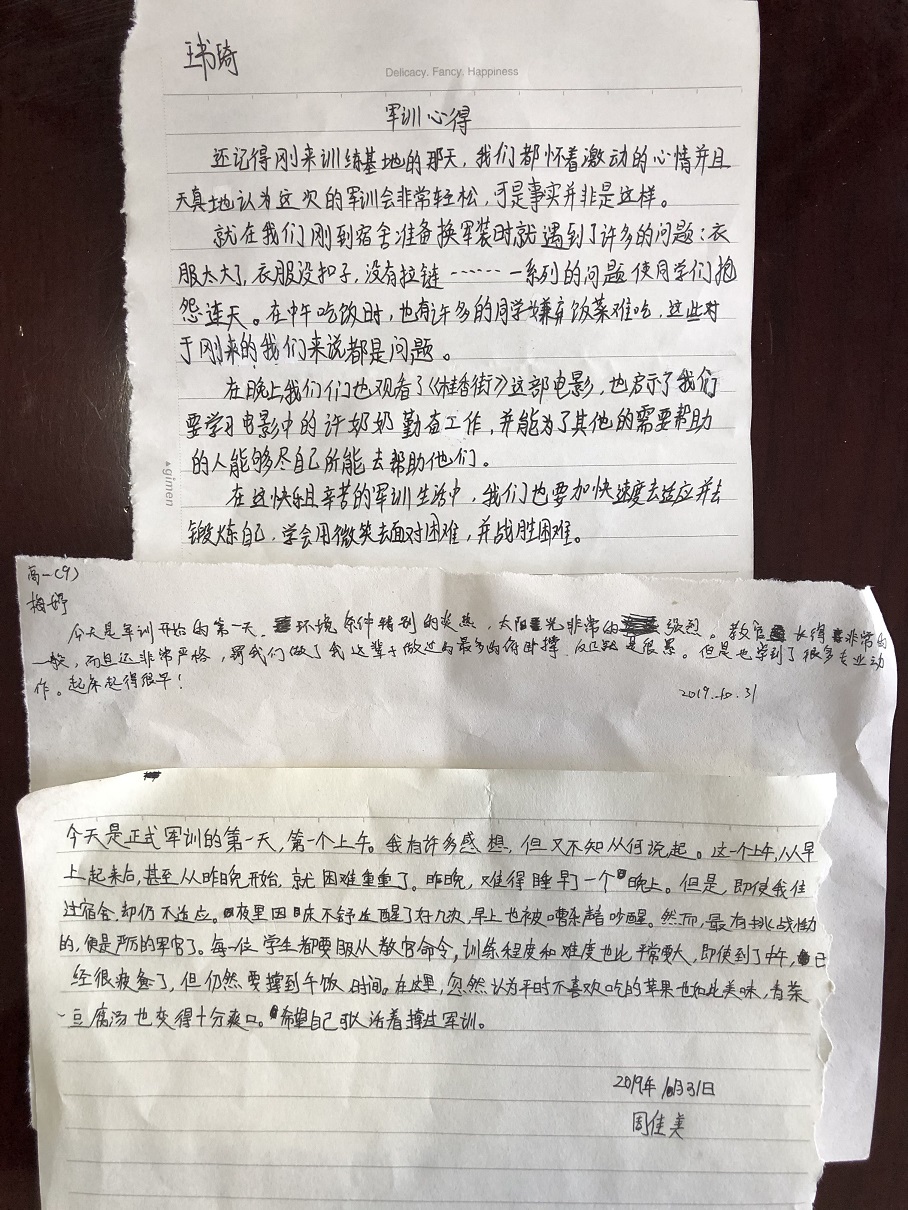 王书琦
Delicacy. Fancy. Happiness
军训心得
还记得刚来训练基地的那天，我们都怀着激动的心情并且
天真地认为这次的军训会非常轻松，可是事实并非是这样。
就在我们刚到宿舍准备换军装时就遇到了许多的问题：衣
服太大了，衣服没扣子，没有拉链……一系列的问题使同学们抱
怨连天。在中午吃饭时，也有许多的同学嫌弃饭菜难吃，这些对
于刚来的我们来说都是问题。
在晚上我们们也观看了《桂香街》这部电影，也启示了我们
要学习电影中的许奶奶勤奋工作，并能为了其他的需要帮助
的人能够尽自己所能去帮助他们。
在这快乐且辛苦的军训生活中，我们也要加快速度去适应并去
锻炼自己，学会用微笑去面对困难，并战胜困难。
gimen
高一(9)
梅妤
今天是军训开始的第一天，环境条件特别的炎热，太阳光非常的强烈。教官长得非常的
一般，而且还非常严格，罚我们做了我这辈子做过的最多的俯卧撑，反正就是很累。但是也学到了很多专业动
作。起床起得很早！
2019.10.31
今天是正式军训的第一天，第一个上午。我有许多感想，但又不知从何说起。这一个上午，从早
上起来后，甚至从昨晚开始，就困难重重了。昨晚，难得睡早了一个晚上。但是，即使我住
过宿舍，却仍不适应。夜里因床不舒适醒了好几次，早上也被嘈杂声音吵醒。然而，最有挑战性
的，便是严厉的军官了。每一位学生都要服从教官命令，训练程度和难度也比平常要大，即使到了中午，已
经很疲惫了，但仍然要撑到午饭时间。在这里，忽然认为平时不喜欢吃的苹果也如此美味，青菜
豆腐汤也变得十分爽口。希望自己可以活着撑过军训。
2019年10月31日
周佳美